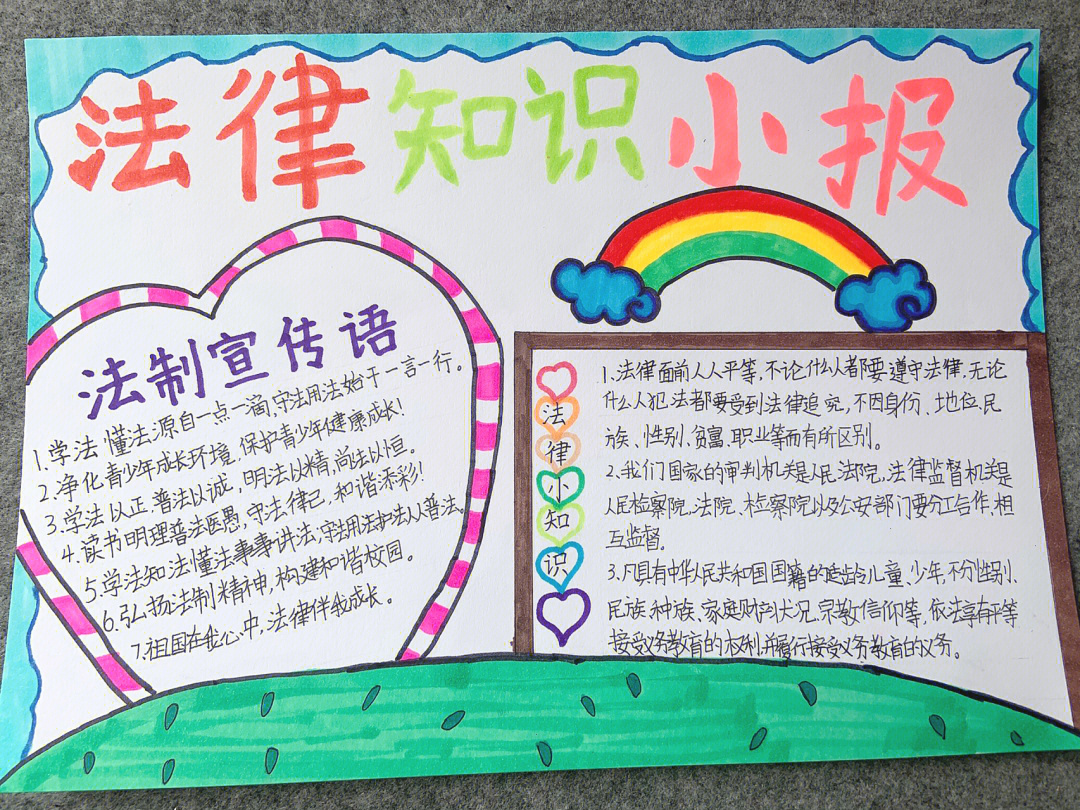 法律知识小报
法制宣传语
1.学法懂法源自一点一滴,守法用法始于一言一行。
2.净化青少年成长环境,保护青少年健康成长!
3.学法以正,普法以诚,明法以精,尚法以恒。
4.读书明理普法医愚,守法律己,和谐添彩!
5.学法知法懂法事事讲法,守法用法护法人人普法。
6.弘扬法制精神,构建和谐校园。
7.祖国在我心中,法律伴我成长。
法
律
小
知
识
1.法律面前人人平等,不论什么人都要遵守法律,无论
什么人犯法都要受到法律追究,不因身份、地位、民
族、性别、贫富、职业等而有所区别。
2.我们国家的审判机关是人民法院,法律监督机关是
人民检察院,法院、检察院以及公安部门要分工合作,相
互监督。
3.凡具有中华人民共和国国籍的适龄儿童、少年,不分性别、
民族、种族、家庭财产状况、宗教信仰等,依法享有平等
接受义务教育的权利,并履行接受义务教育的义务。